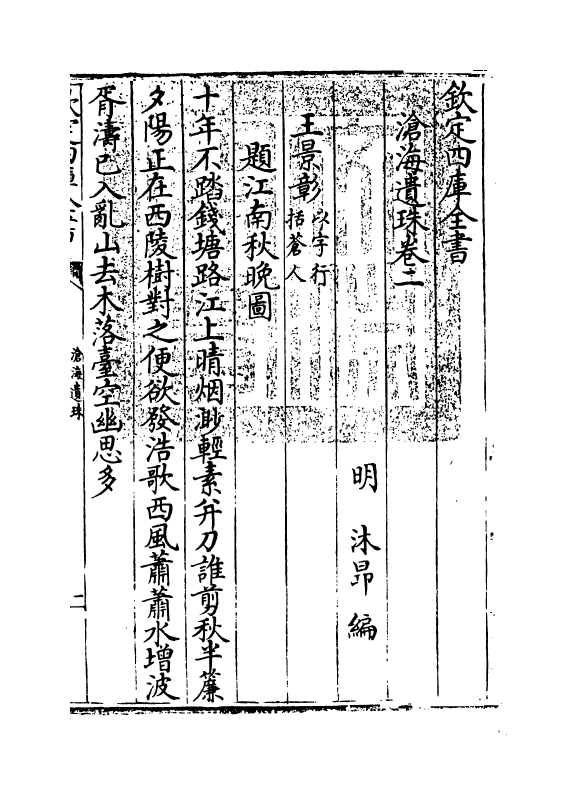 欽定四庫全書
滄海遺珠卷二
明 沐昂 編
王景彰 以字行
括蒼人
題江南秋晚圖
十年不踏錢塘路江上晴烟渺輕素并刀誰剪秋半簾
夕陽正在西陵樹對之便欲發浩歌西風蕭蕭水增波
胥濤已入亂山去木落臺空幽思多
欽定四庫全書
滄海遺珠
二